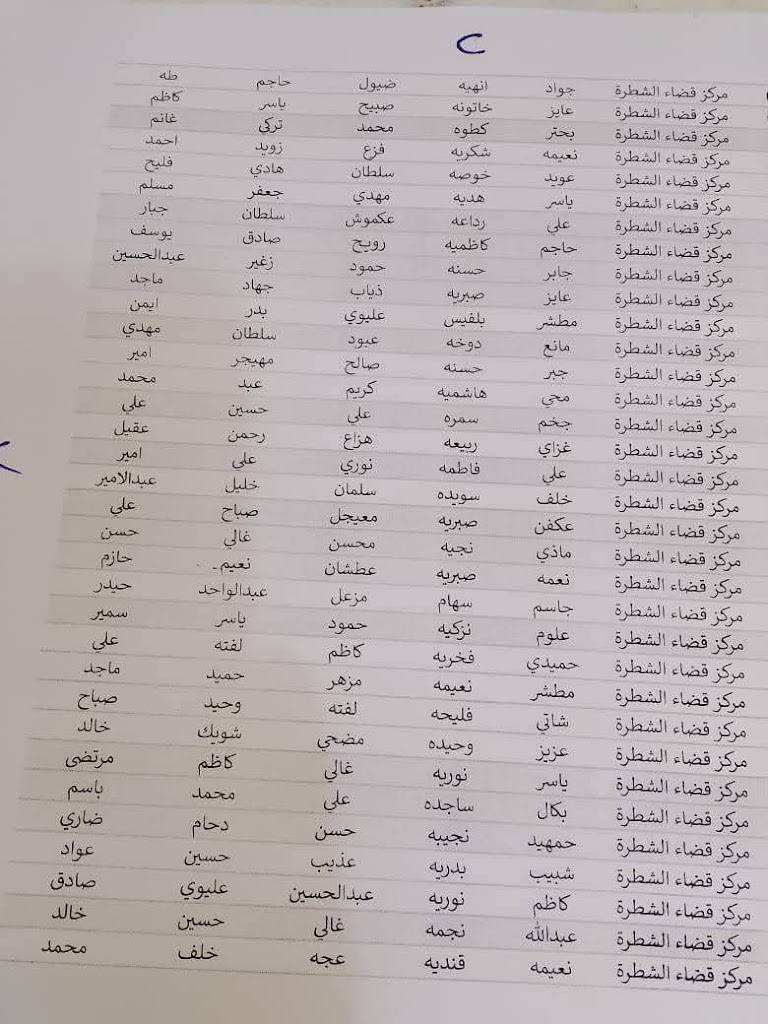 مركز قضاء الشطرة جواد انهيه ضيول حاجم طه
مركز قضاء الشطرة عايز خاتونه صبيح ياسر كاظم
مركز قضاء الشطرة بحتر كطوه محمد تركي غانم
مركز قضاء الشطرة نعيمه شكريه فزع زويد احمد
مركز قضاء الشطرة عويد خوصه سلطان هادي فليح
مركز قضاء الشطرة ياسر هديه مهدي جعفر مسلم
مركز قضاء الشطرة علي رداعه عكموش سلطان جبار
مركز قضاء الشطرة حاجم كاظميه رويح صادق يوسف
مركز قضاء الشطرة جابر حسنه حمود زغير عبدالحسين
مركز قضاء الشطرة عايز صبريه ذياب جهاد ماجد
مركز قضاء الشطرة مطشر بلقيس عليوي بدر ايمن
مركز قضاء الشطرة مانع دوخه عبود سلطان مهدي
مركز قضاء الشطرة جبر حسنه صالح مهيجر امير
مركز قضاء الشطرة محي هاشميه كريم عبد محمد
مركز قضاء الشطرة جخم سمره علي حسين علي
مركز قضاء الشطرة غزاي ربيعه هزاع رحمن عقيل
مركز قضاء الشطرة علي فاطمه نوري علي امير
مركز قضاء الشطرة خلف سويده سلمان خليل عبدالامير
مركز قضاء الشطرة عكفن صبريه معيجل صباح علي
مركز قضاء الشطرة ماذي نجيه محسن غالي حسن
مركز قضاء الشطرة نعمه صبريه عطشان نعيم حازم
مركز قضاء الشطرة جاسم سهام مزعل عبدالواحد حيدر
مركز قضاء الشطرة علوم نزكيه حمود ياسر سمير
مركز قضاء الشطرة حميدي فخريه كاظم لفته علي
مركز قضاء الشطرة مطشر نعيمه مزهر حميد ماجد
مركز قضاء الشطرة شاتي فليحه لفته وحيد صباح
مركز قضاء الشطرة عزيز وحيده مضحي شويك خالد
مركز قضاء الشطرة ياسر نوريه غالي كاظم مرتضى
مركز قضاء الشطرة بكال ساجده علي محمد باسم
مركز قضاء الشطرة حمهيد نجيبه حسن دحام ضاري
مركز قضاء الشطرة شبيب بدريه عذيب حسين عواد
مركز قضاء الشطرة كاظم نوريه عبدالحسين عليوي صادق
مركز قضاء الشطرة عبدالله نجمه غالي حسين خالد
مركز قضاء الشطرة نعيمه قنديه عجه خلف محمد